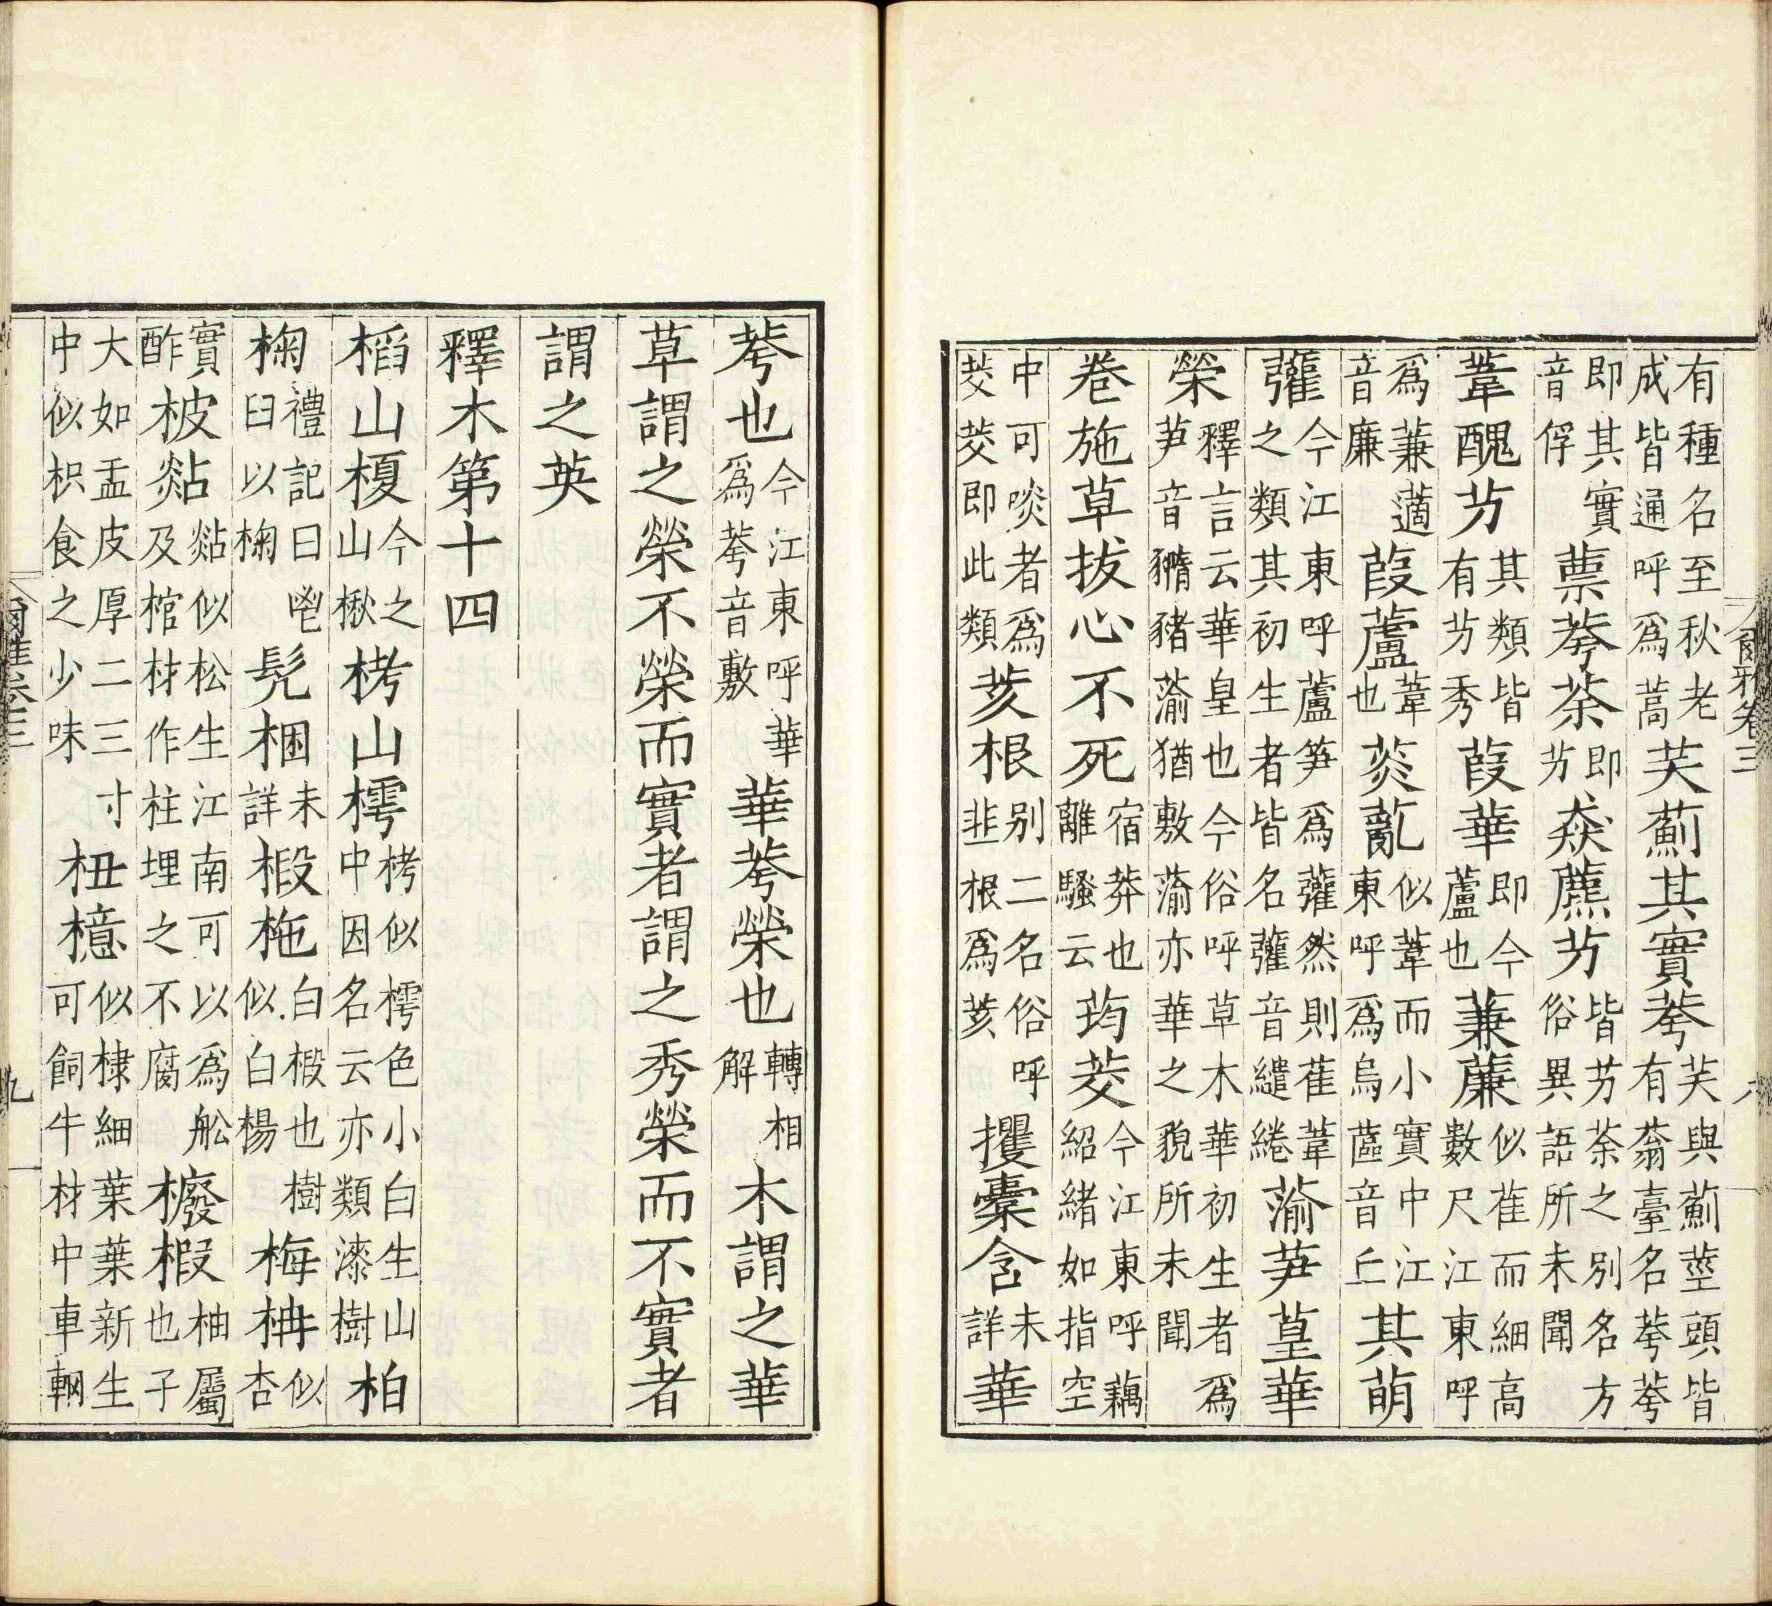 爾雅卷三 八
有種名至秋老成皆通呼爲蒿芺薊其實荂芺與薊莖頭皆有蓊臺名荂荂
即其實音俘蔈荂荼即芀猋藨芀皆芀荼之別名方俗異語所未聞
葦醜芀其類皆有芀秀葭華即今蘆也蒹薕似萑而細高數尺江東呼
爲蒹藡音廉葭蘆葦也菼薍似葦而小實中江東呼爲烏蓲音丘其萌
虇今江東呼蘆笋爲虇然則萑葦之類其初生者皆名虇音繾綣蕍芛葟華
榮釋言云華皇也今俗呼草木華初生者爲芛音豬蕍猶敷蕍亦華之貌所未聞
卷施草拔心不死宿莽也離騷云荺茭今江東呼藕紹緒如指空
中可啖者爲茭茭即此類荄根别二名俗呼韭根爲荄攫橐含未詳華
荂也今江東呼華爲荂音敷華荂榮也轉相解木謂之華
草謂之榮不榮而實者謂之秀榮而不實者
謂之英
釋木第十四
槄山榎今之山楸栲山樗栲似樗色小白生山中因名云亦類漆樹柏
椈禮記曰鬯臼以椈髡梱未詳椵柂白椵也樹似白楊梅柟似杏
實酢柀煔煔似松生江南可以爲舩及棺材作柱埋之不腐櫠椵柚屬也子
大如盂皮厚二三寸中似枳食之少味杻檍似棣細葉葉新生可飼牛材中車輞
爾雅卷三 九